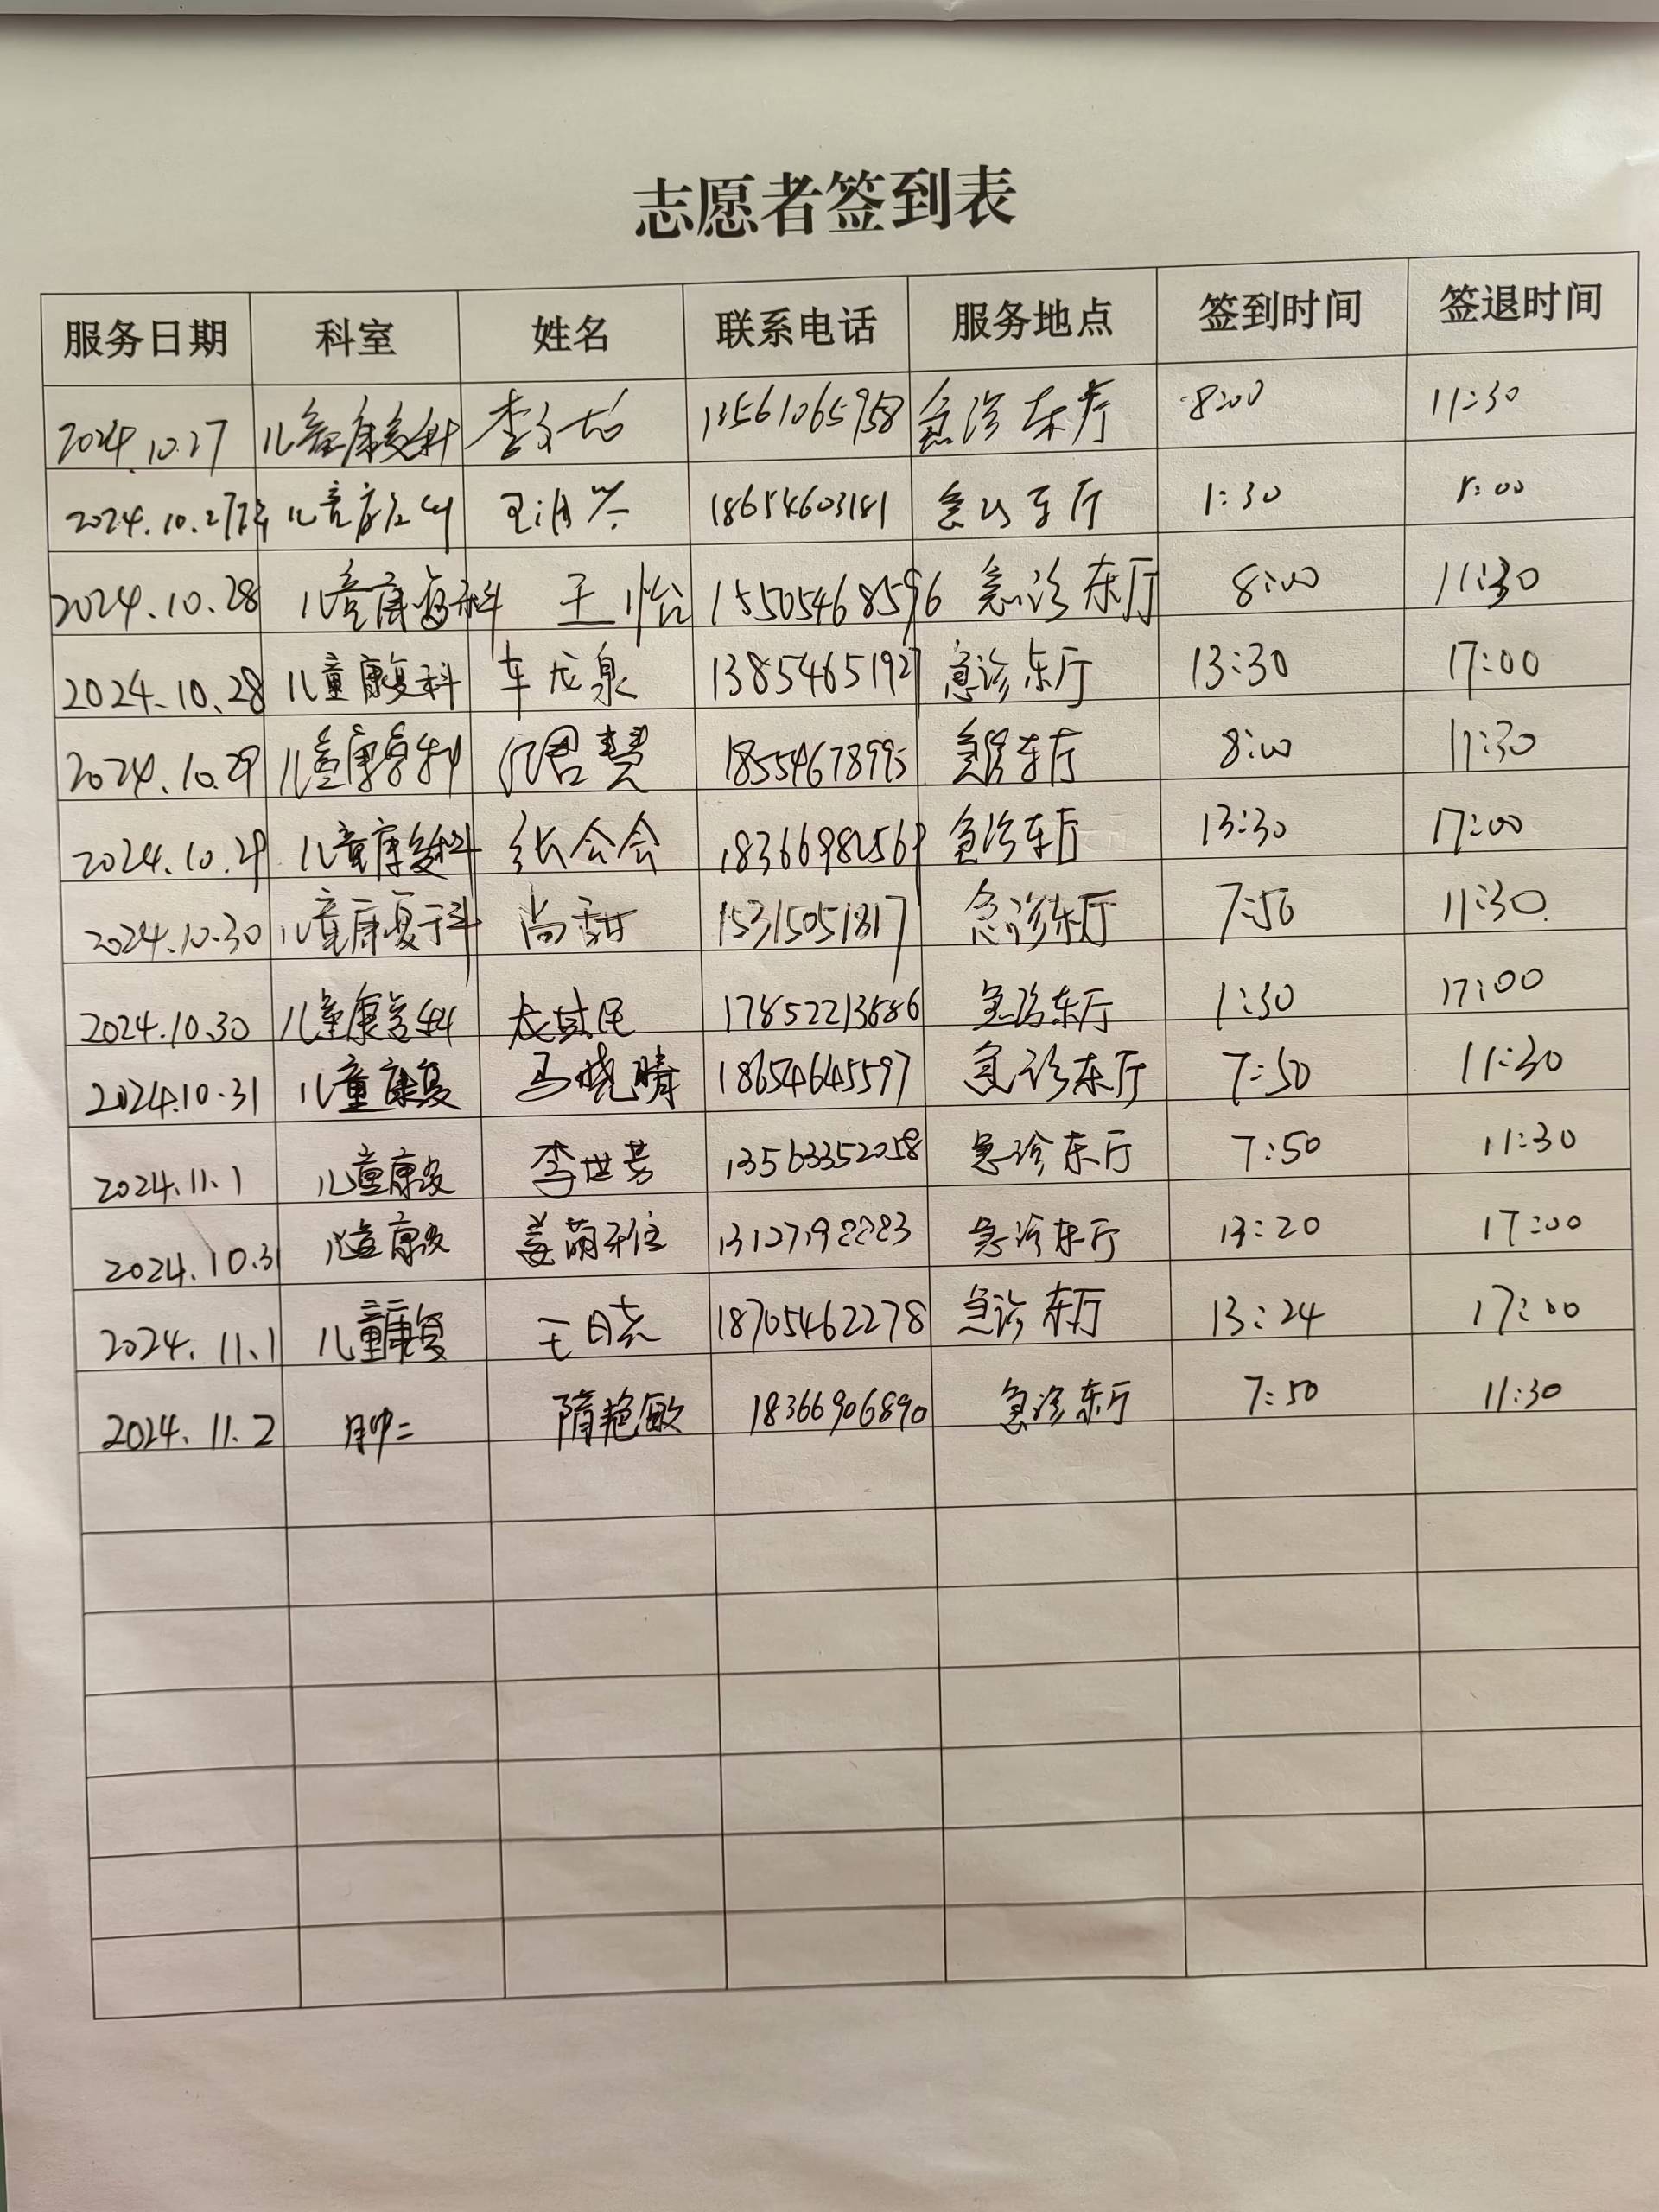 志愿者签到表
服务日期 科室 姓名 联系电话 服务地点 签到时间 签退时间
2024.10.27 儿童康复科 李 13561065958 急诊东厅 8:00 11:30
2024.10.27 儿童康复科 王 18654603181 急诊东厅 1:30 5:00
2024.10.28 儿童康复科 王怡 15505468596 急诊东厅 8:00 11:30
2024.10.28 儿童康复科 车龙泉 13854651927 急诊东厅 13:30 17:00
2024.10.29 儿童康复科 君慧 18554678995 急诊东厅 8:00 11:30
2024.10.29 儿童康复科 张会会 急诊东厅 13:30 17:00
2024.10.30 儿童康复科 尚甜 15315051817 急诊东厅 7:50 11:30
2024.10.30 儿童康复科 17852213686 急诊东厅 1:30 17:00
2024.10.31 儿童康复 马晓晴 18654645597 急诊东厅 7:50 11:30
2024.11.1 儿童康复 李世芳 13563352058 急诊东厅 7:50 11:30
2024.10.31 儿童康复 急诊东厅 13:20 17:00
2024.11.1 儿童康复 王晓 18705462278 急诊东厅 13:24 17:00
2024.11.2 肿二 隋艳敏 18366906890 急诊东厅 7:50 11:30